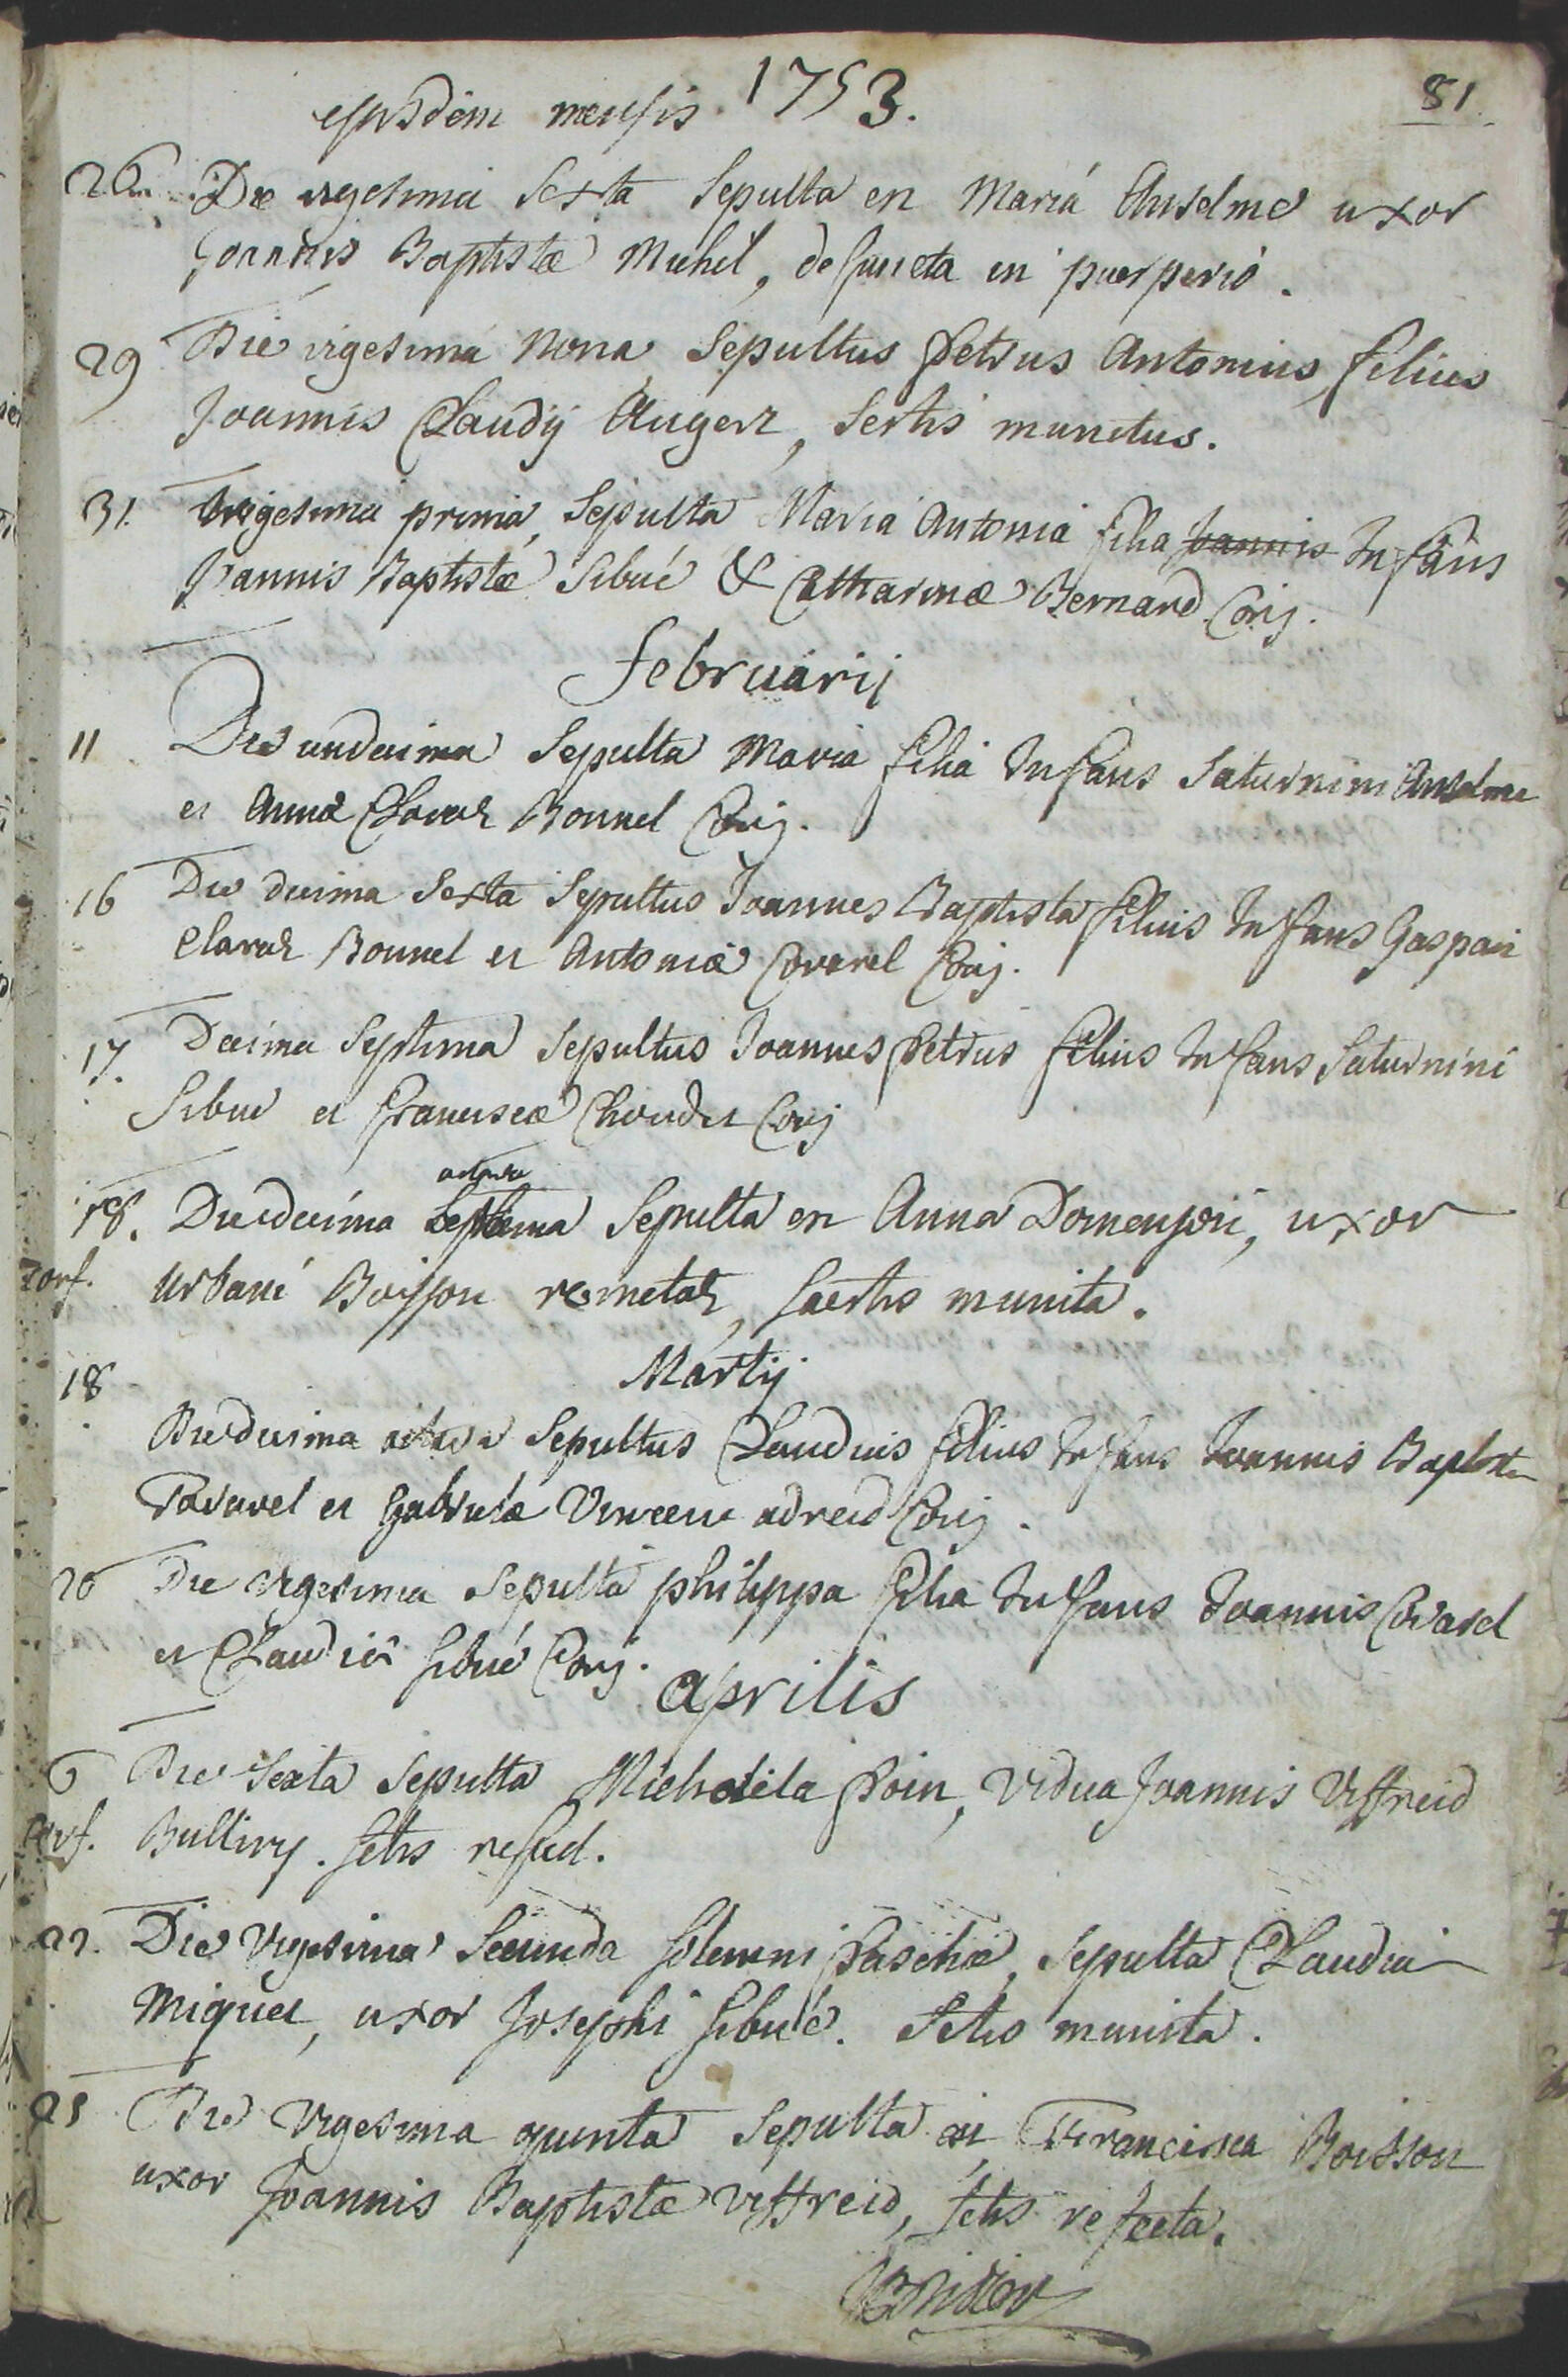 1753.
81
ejusdem mensis
26 Die vigesima sexta Sepulta est Maria Anselme uxor
Joannis Baptistæ Michel, defuncta in puerperio.
29 Die vigesima nona Sepultus Petrus Antonius filius
Joannis Claudij Augert, Sctis munitus.
31. Trigesima prima, Sepulta Maria Antonia filia Joannis Infans
Joannis Baptistæ Sibué & Catharinæ Bernard Conj.
februarij
11 Die undecima Sepulta Maria filia Infans Saturnini Anselme
et Annæ Bonnel Conj.
16 Die decima Sexta Sepultus Joannes Baptista filius Infans Gaspari
Bonnel et Antoniæ Covarel Conj.
17. Decima Septima Sepultus Joannes Petrus filius Infans Saturnini
Sibue et franciscæ Choudet Conj
octava
18. Die decima Septima Sepulta est Anna Domenjon, uxor
conf. Urbani Boisson, munita.
Martij
18
Die decima octava Sepultus Claudius filius Infans Joannis Baptistæ
et Gabrielæ Vincent adreid Conj.
20 Die vigesima Sepulta philippa filia Infans Joannis Covarel
et Claudiæ Sibué Conj.
aprilis
6 Die Sexta Sepulta Michaela Poin, vidua Joannis Viffreid
conf. Sctis
22. Die vigesima Secunda solemni Paschæ, Sepulta Claudia
Miquet, uxor Josephi Sibué. Sctis munita.
25 Die vigesima quinta Sepulta est Francisca Boisson
uxor Joannis Baptistæ Viffreid, sctis refecta.